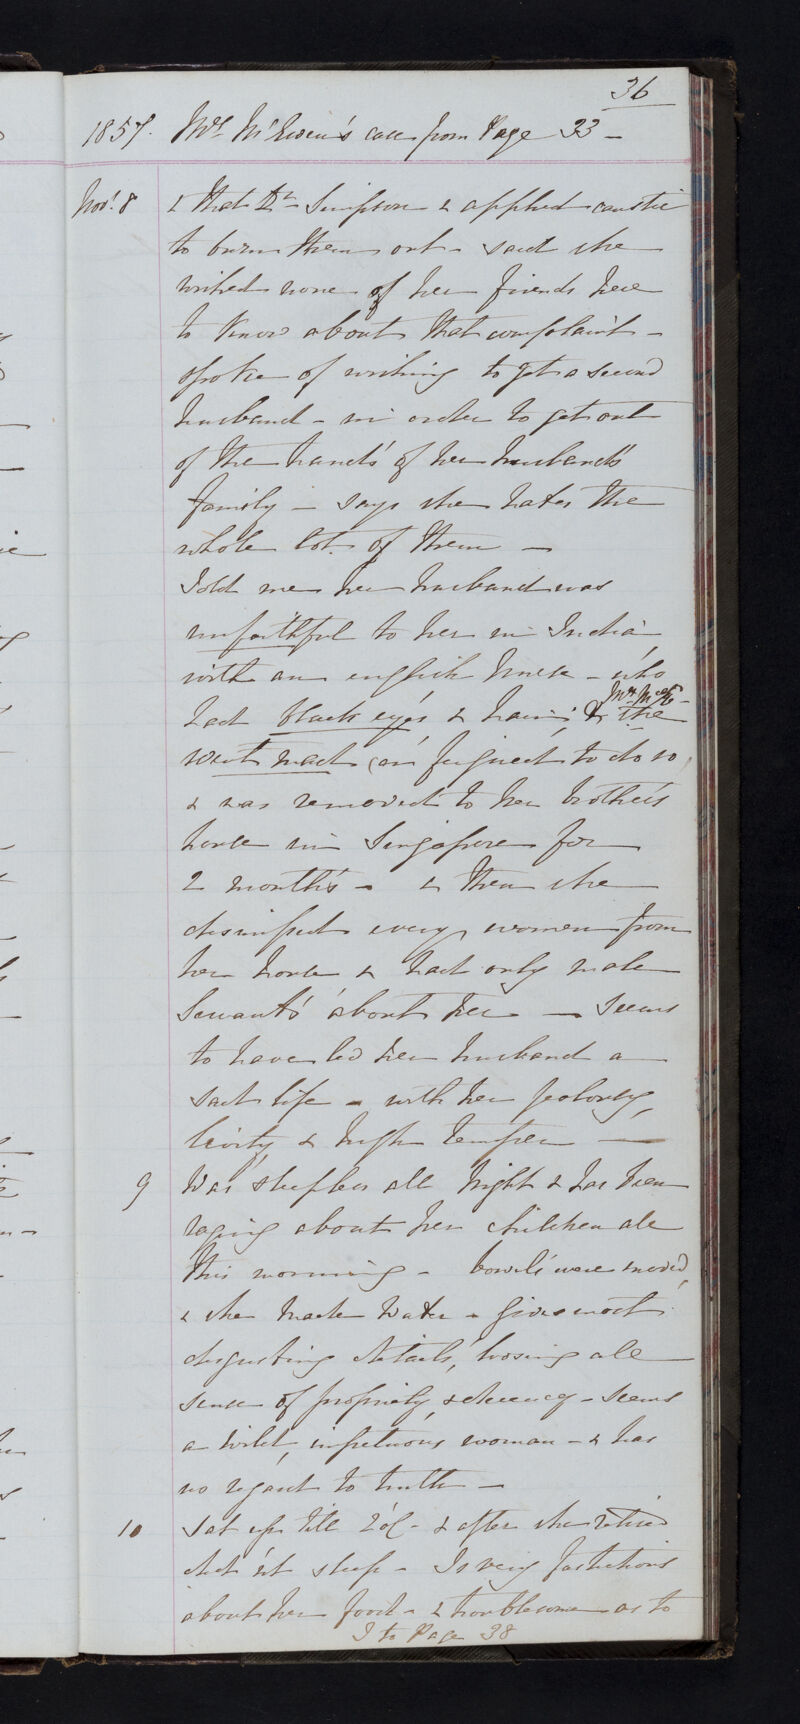 36
1857. Mrs McEwen's case from Page 33 -
Novr. 8 & that Dr Simpson & applied caustic
to burn them out - said she
wished none of her friends here
to know about that complaint -
spoke of writing to get a second
husband - in order to get out
of the hands of her husband's
family - says she hates the
whole lot of them -
Told me her husband was
unfaithful to her in India,
with an english Nurse - who
Mrs McE -
had black eyes & hair; & she
went mad (or feigned to do so,
& was removed to her brother's
house in Singapore for
2 months - & then she
dismissed every women from
her house & had only male
Servants about her - Seems
to have led her husband a
sad life - with her jealousy,
levity, & high temper -
9 Was sleepless all Night & has been
raging about her children all
this morning - bowels were moved,
& she made water - gives most
disgusting details, losing all
sense of propriety, & decency - seems
a wild, impetuous woman - & has
no regard to truth -
10 Sat up till 2 o'C - & after she retired
did n't sleep - Is very fastidious
about her food - & troublesome as to
to Page 38